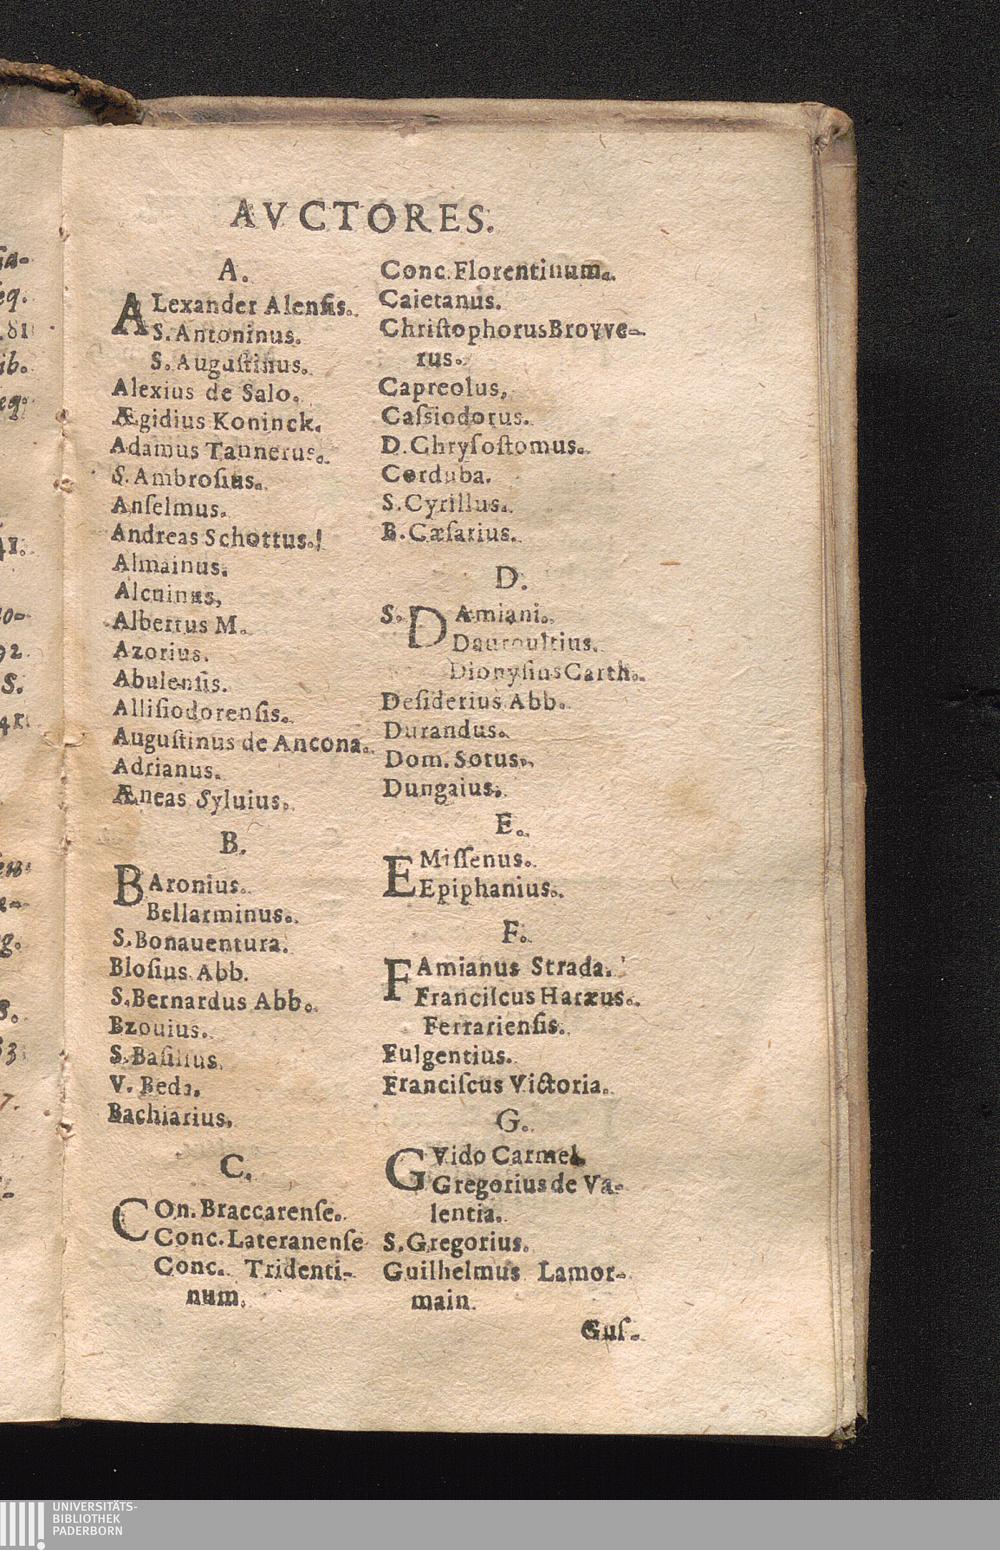 AVCTORES.
A.
ALexander Alenſis.
S. Antoninus.
S. Auguſtinus.
Alexius de Salo.
Ægidius Koninck.
Adamus Tannerus.
S. Ambroſius.
Anſelmus.
Andreas Schottus.
Almainus.
Alcuinus,
Albertus M.
Azorius.
Abulenſis.
Alliſiodorenſis.
Auguſtinus de Ancona.
Adrianus.
Æneas Syluius.
B.
BAronius.
Bellarminus.
S. Bonauentura.
Bloſius Abb.
S. Bernardus Abb.
Bzouius.
S. Baſilius.
V. Beda.
Bachiarius.
C.
COn. Braccarenſe.
Conc. Lateranenſe
Conc. Tridenti-
num.
Conc. Florentinum.
Caietanus.
Chriſtophorus Brovve-
rus.
Capreolus,
Caſsiodorus.
D. Chryſoſtomus.
Corduba.
S. Cyrillus.
B. Cæſarius.
D.
S. DAmiani.
Dauroultius.
Dionyſius Carth.
Deſiderius Abb.
Durandus.
Dom. Sotus.
Dungaius.
E.
EMiſſenus.
Epiphanius.
F.
FAmianus Strada.
Franciſcus Haræus.
Ferrarienſis.
Fulgentius.
Franciſcus Victoria.
G.
GVido Carmel.
Gregorius de Va-
lentia.
S. Gregorius.
Guilhelmus Lamor-
main.
Guſ-
UNIVERSITÄTS-
BIBLIOTHEK
PADERBORN